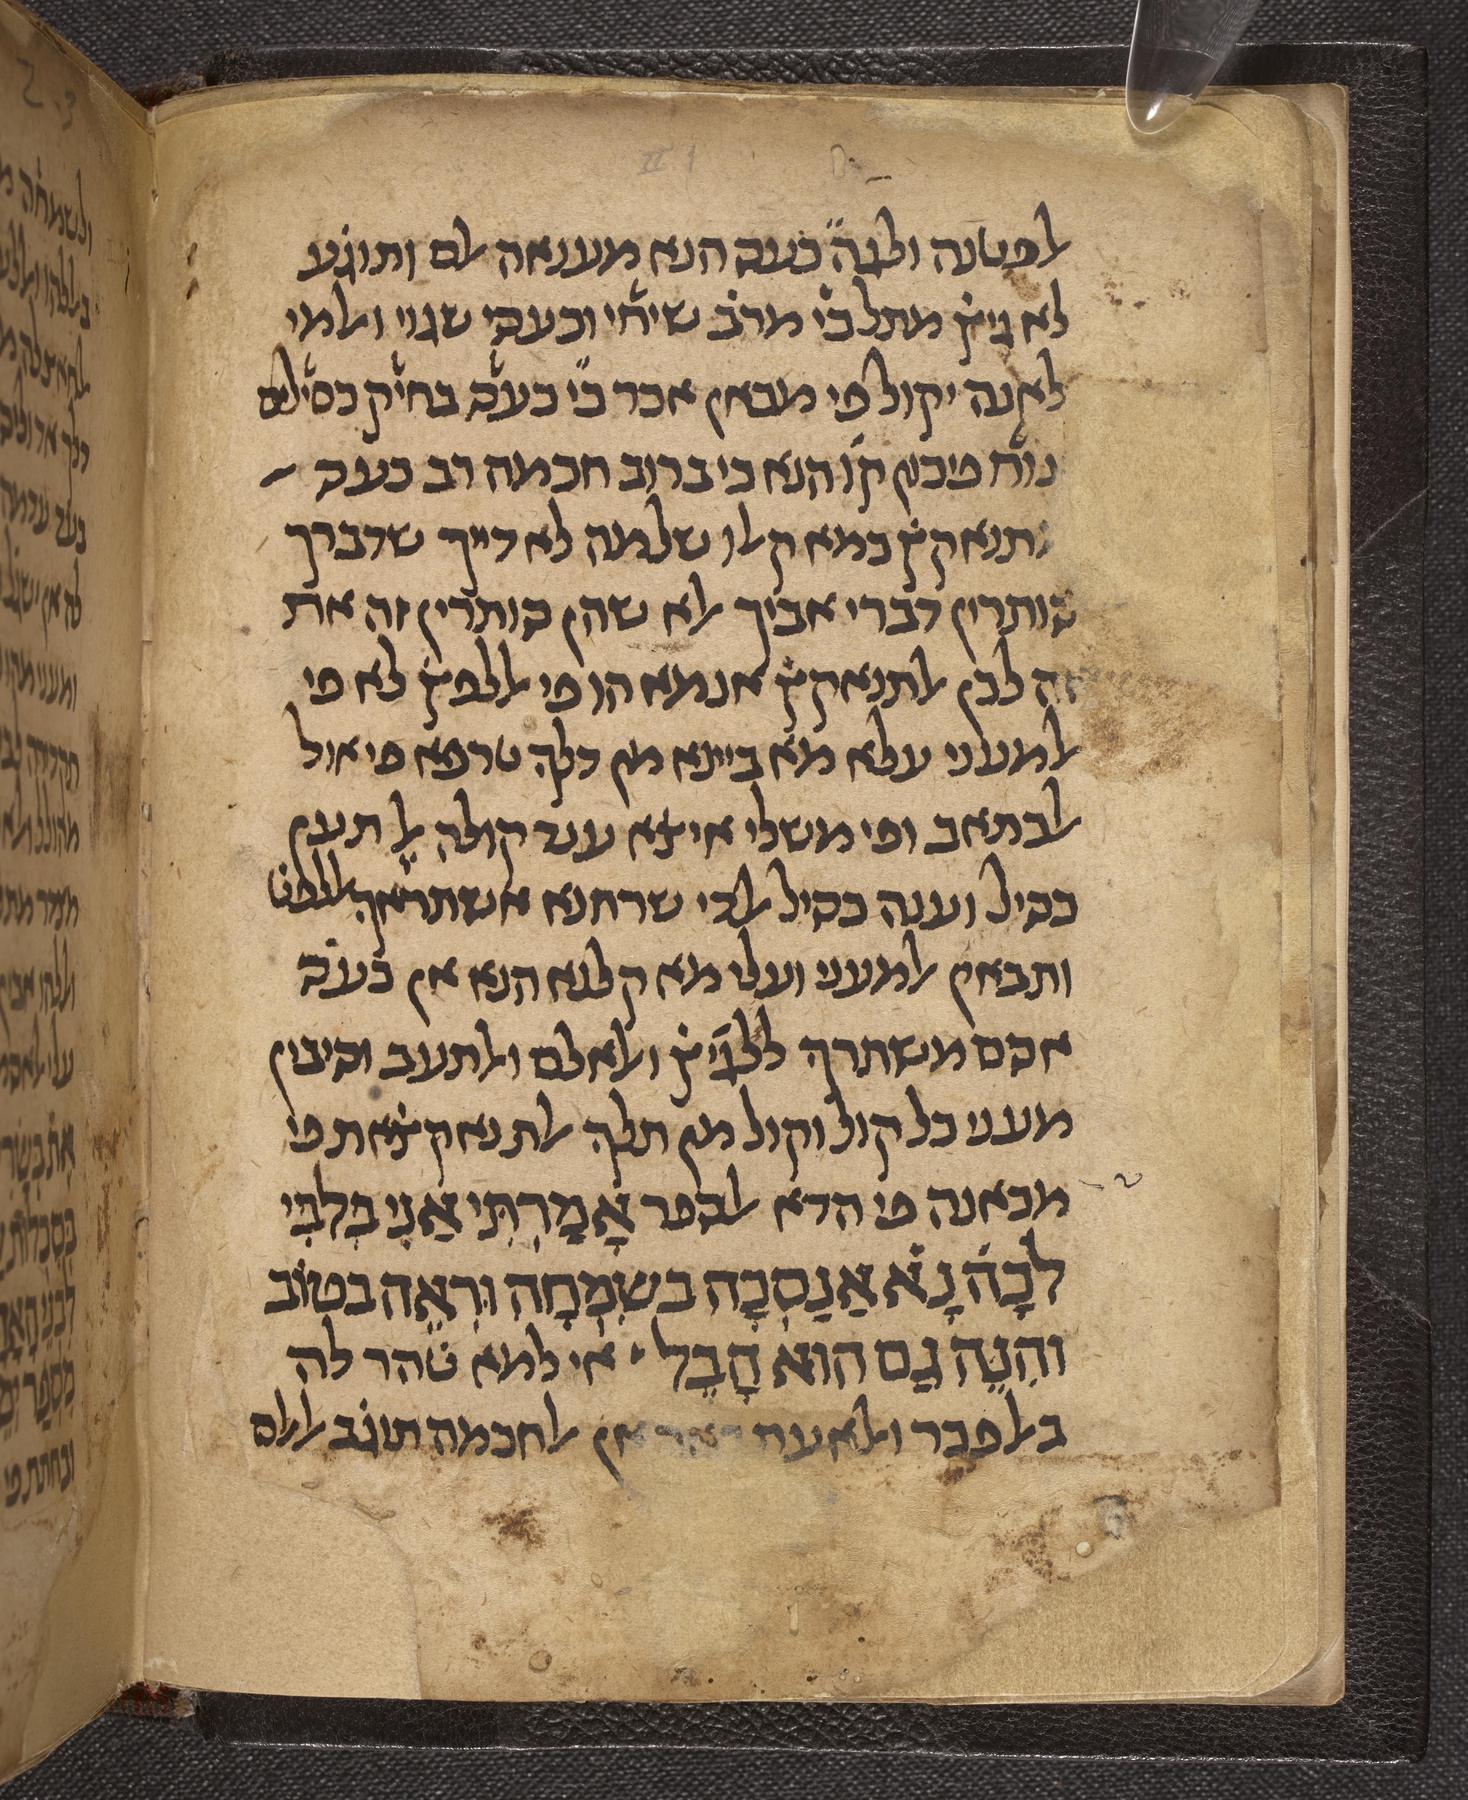 אלפטנה ולגה̈ כעס הנא מענאה אלם ותוגֹע
לא גיץֹ מתל כֹי מרב שיחי וכעסי שגוי ואלמי
לאנה יקול פי מכאן אכר כי כעס בחיק כסילים
ינוח פיכון קו הנא כי ברוב חכמה רב כעס
תנאקץֹ כמא קאלו שלמה לא דייך שדבריך
סותרין דברי אביך אלא שהן סותרין זה את
זה לכן אלתנאקץֹ אנמא הו פי אללפץֹ לא פי
אלמעאני עלא מא ביינא מן דלך טרפא פי אול
אלכתאב ופי משלי איצֹא ענד קולה אל תען
כסיל וענה כסיל אלדי שרחנא אשתראך אללפטֹ
ותבאין אלמעני ועלי מא קלנא הנא אן כעס
אסם משתרך ללגיץֹ ואלאלם ואלתעב וסיבין
מעני כל קול וקול מן תלך אלתנאקצֹאת פי
מכאנה פי הדא אלספר אָמַרְתִּי אֲנִי בְּלִבִּי
לְכָה נָּא אֲנַסְכָה בְשִׂמְחָה וּרְאֵה בְטוֹב
וְהִנֵּה גַם הוּא הָבֶל ׃ אי למא טֹהר לה
באלפכר ואלא אן אלחכמה תוגֹב אלאלם